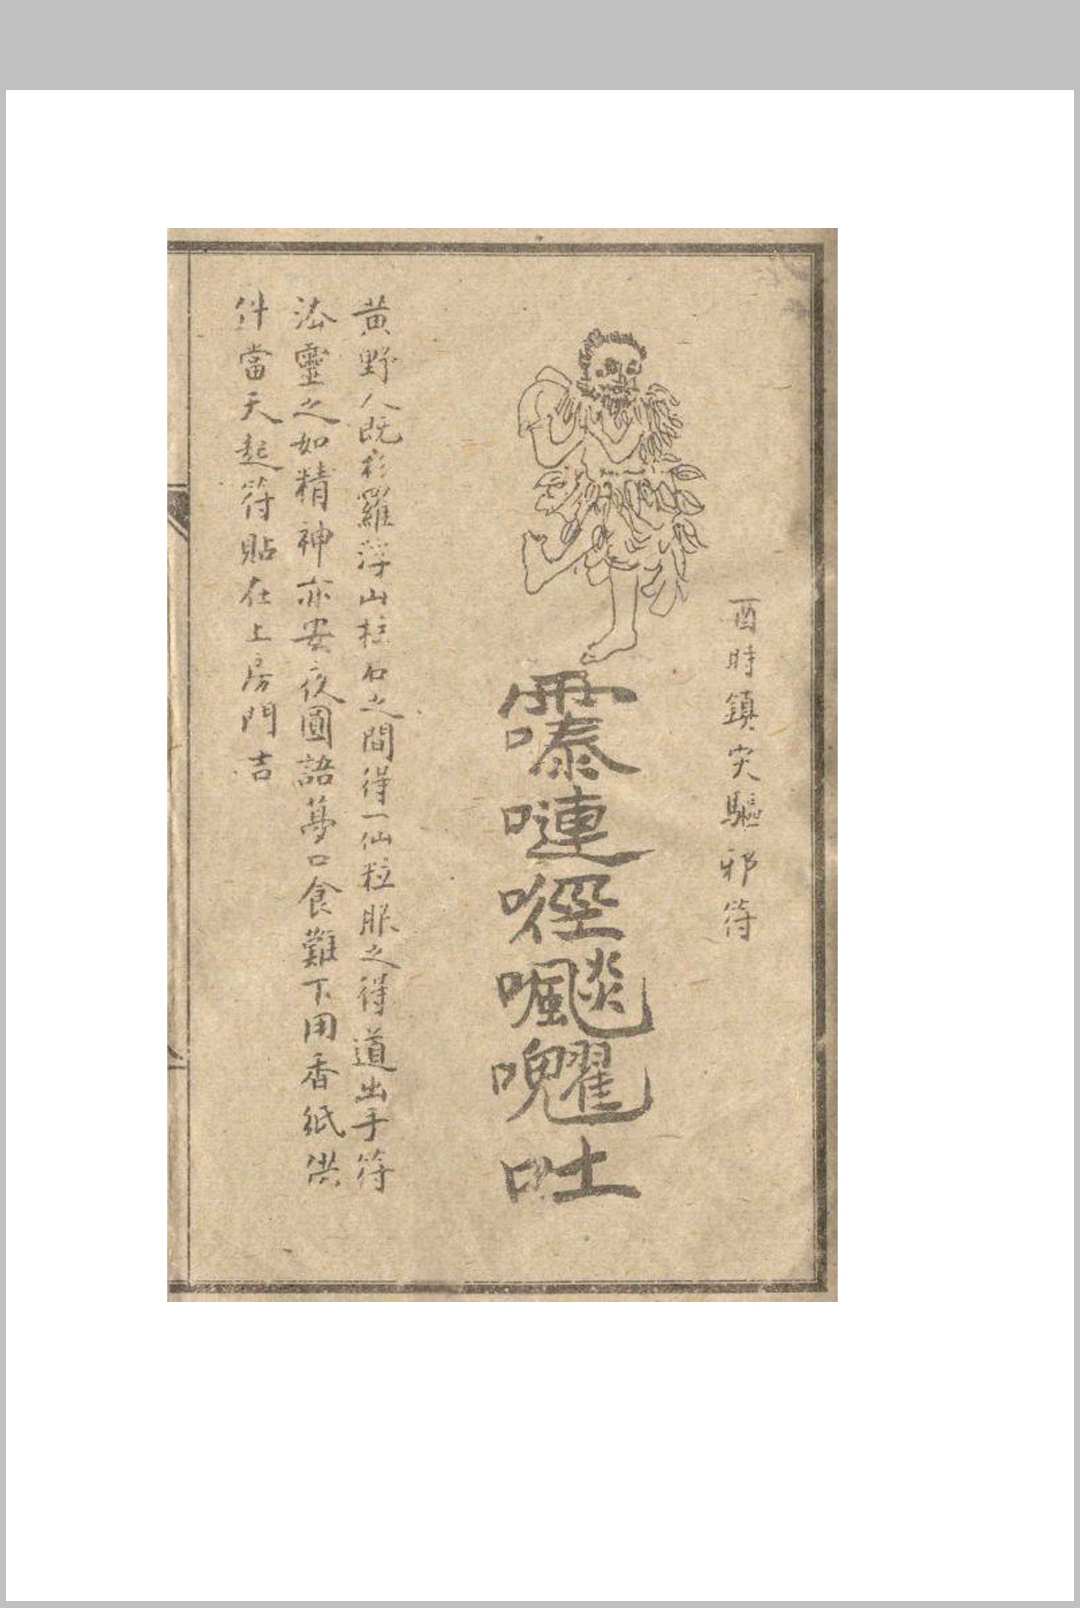 酉時鎮宅驅邪符
嗹
吐
黄野人既於羅浮山柱石之間得一仙粒服之得道出手符
法靈之如精神亦安夜圓語夢口食難下用香紙供
件當天起符貼在上房門吉